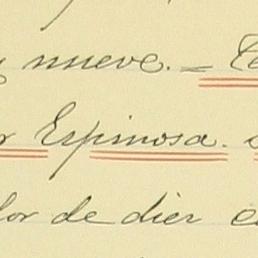 y nueve. =
Espinosa.
lor de diez